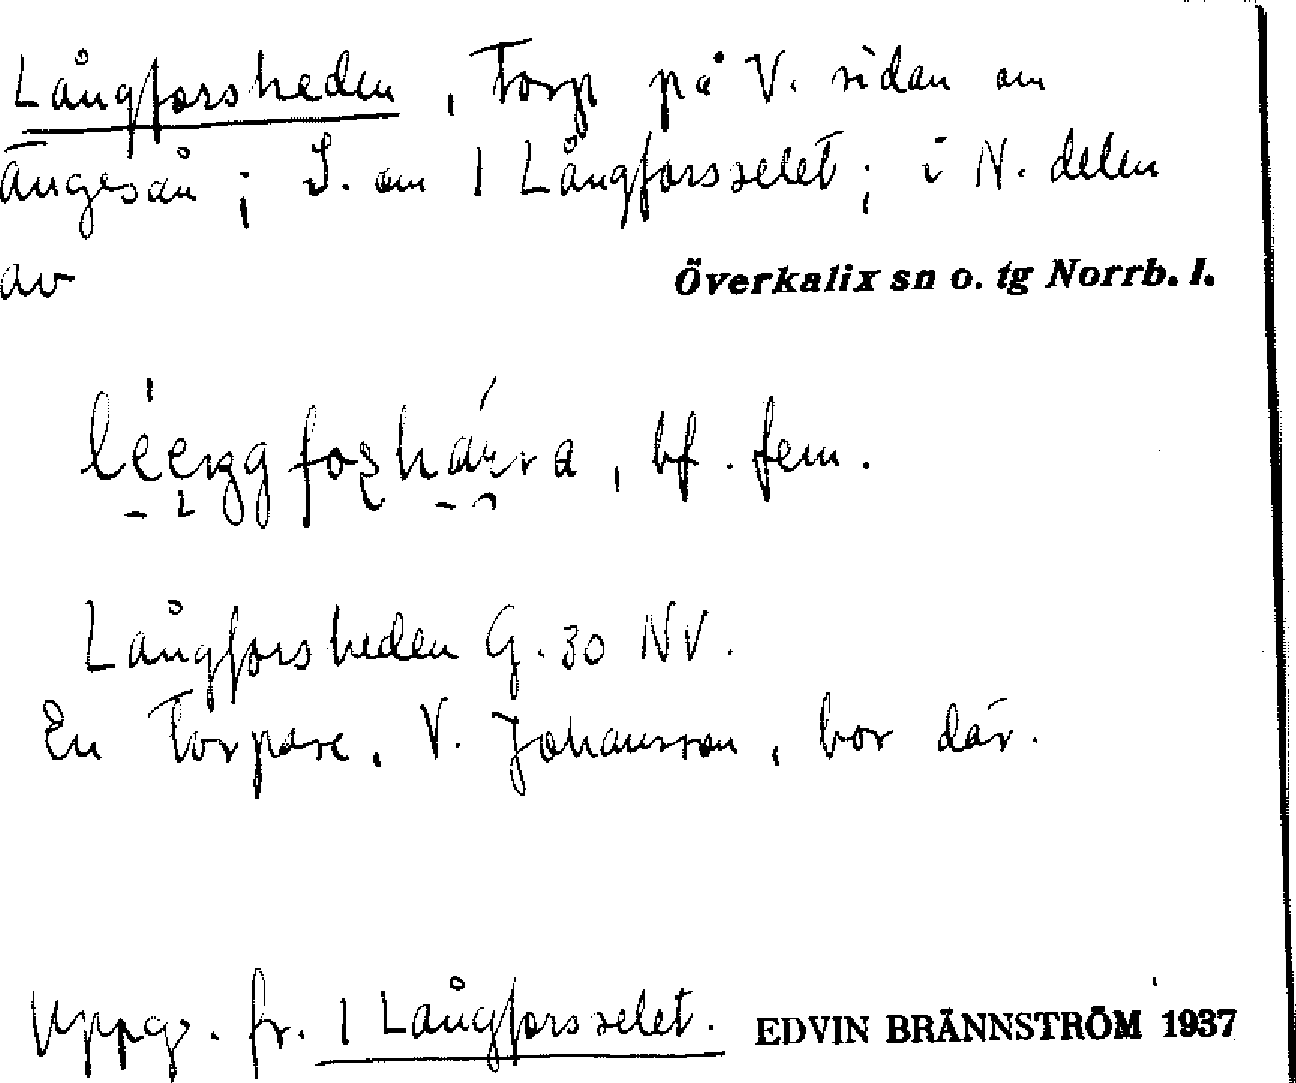 Långforsheden, Torp på V. sidan om
Ängesån; S. om 1 Långforsselet; i N. delen
av Överkalix sn o. tg Norrb. l.
bf. fem.
Långforsheden G. 30 NV.
En Torpare, V. Johansson, bor där.
Uppg. fr. 1 Långforsselet. EDVIN BRÄNNSTRÖM 1937